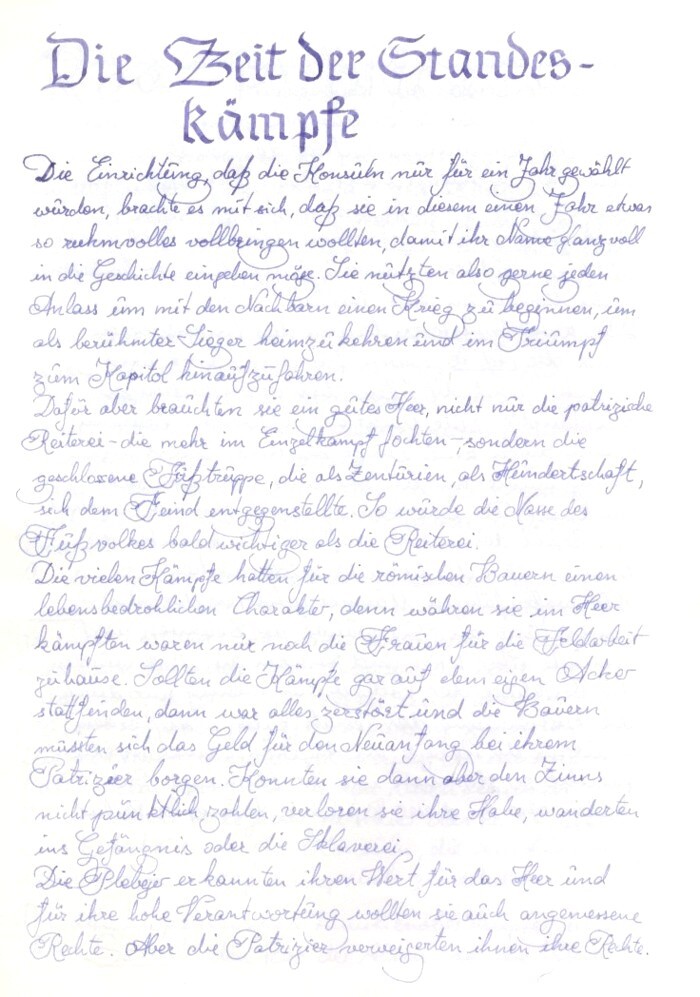 Die Zeit der Standes-
kämpfe
Die Einrichtung, daß die Konsuln nur für ein Jahr gewählt
wurden, brachte es mit sich, daß sie in diesem einen Jahr etwas
so ruhmvolles vollbringen wollten, damit ihr Name glanzvoll
in die Geschichte eingehen möge. Sie nützten also gerne jeden
Anlass um mit den Nachbarn einen Krieg zu beginnen, um
als berühmter Sieger heimzukehren und im Triumpf
zum Kapitol hinaufzufahren.
Dafür aber brauchten sie ein gutes Heer, nicht nur die patrizische
Reiterei - die mehr im Einzelkampf fochten -, sondern die
geschlossene Fußtruppe, die als Zenturien, als Hundertschaft,
sich dem Feind entgegenstellte. So wurde die Masse des
Fußvolkes bald wichtiger als die Reiterei.
Die vielen Kämpfe hatten für die römischen Bauern einen
lebensbedrohlichen Charakter, denn währen sie im Heer
kämpften waren nur noch die Frauen für die Feldarbeit
zuhause. Sollten die Kämpfe gar auf dem eigen Acker
stattfinden, dann war alles zerstört und die Bauern
mussten sich das Geld für den Neuanfang bei ihrem
Patrizier borgen. Konnten sie dann aber den Zinns
nicht pünktlich zahlen, verloren sie ihre Habe, wanderten
ins Gefängnis oder die Sklaverei.
Die Plebejer erkannten ihren Wert für das Heer und
für ihre hohe Verantwortung wollten sie auch angemessene
Rechte. Aber die Patrizier verweigerten ihnen ihre Rechte.